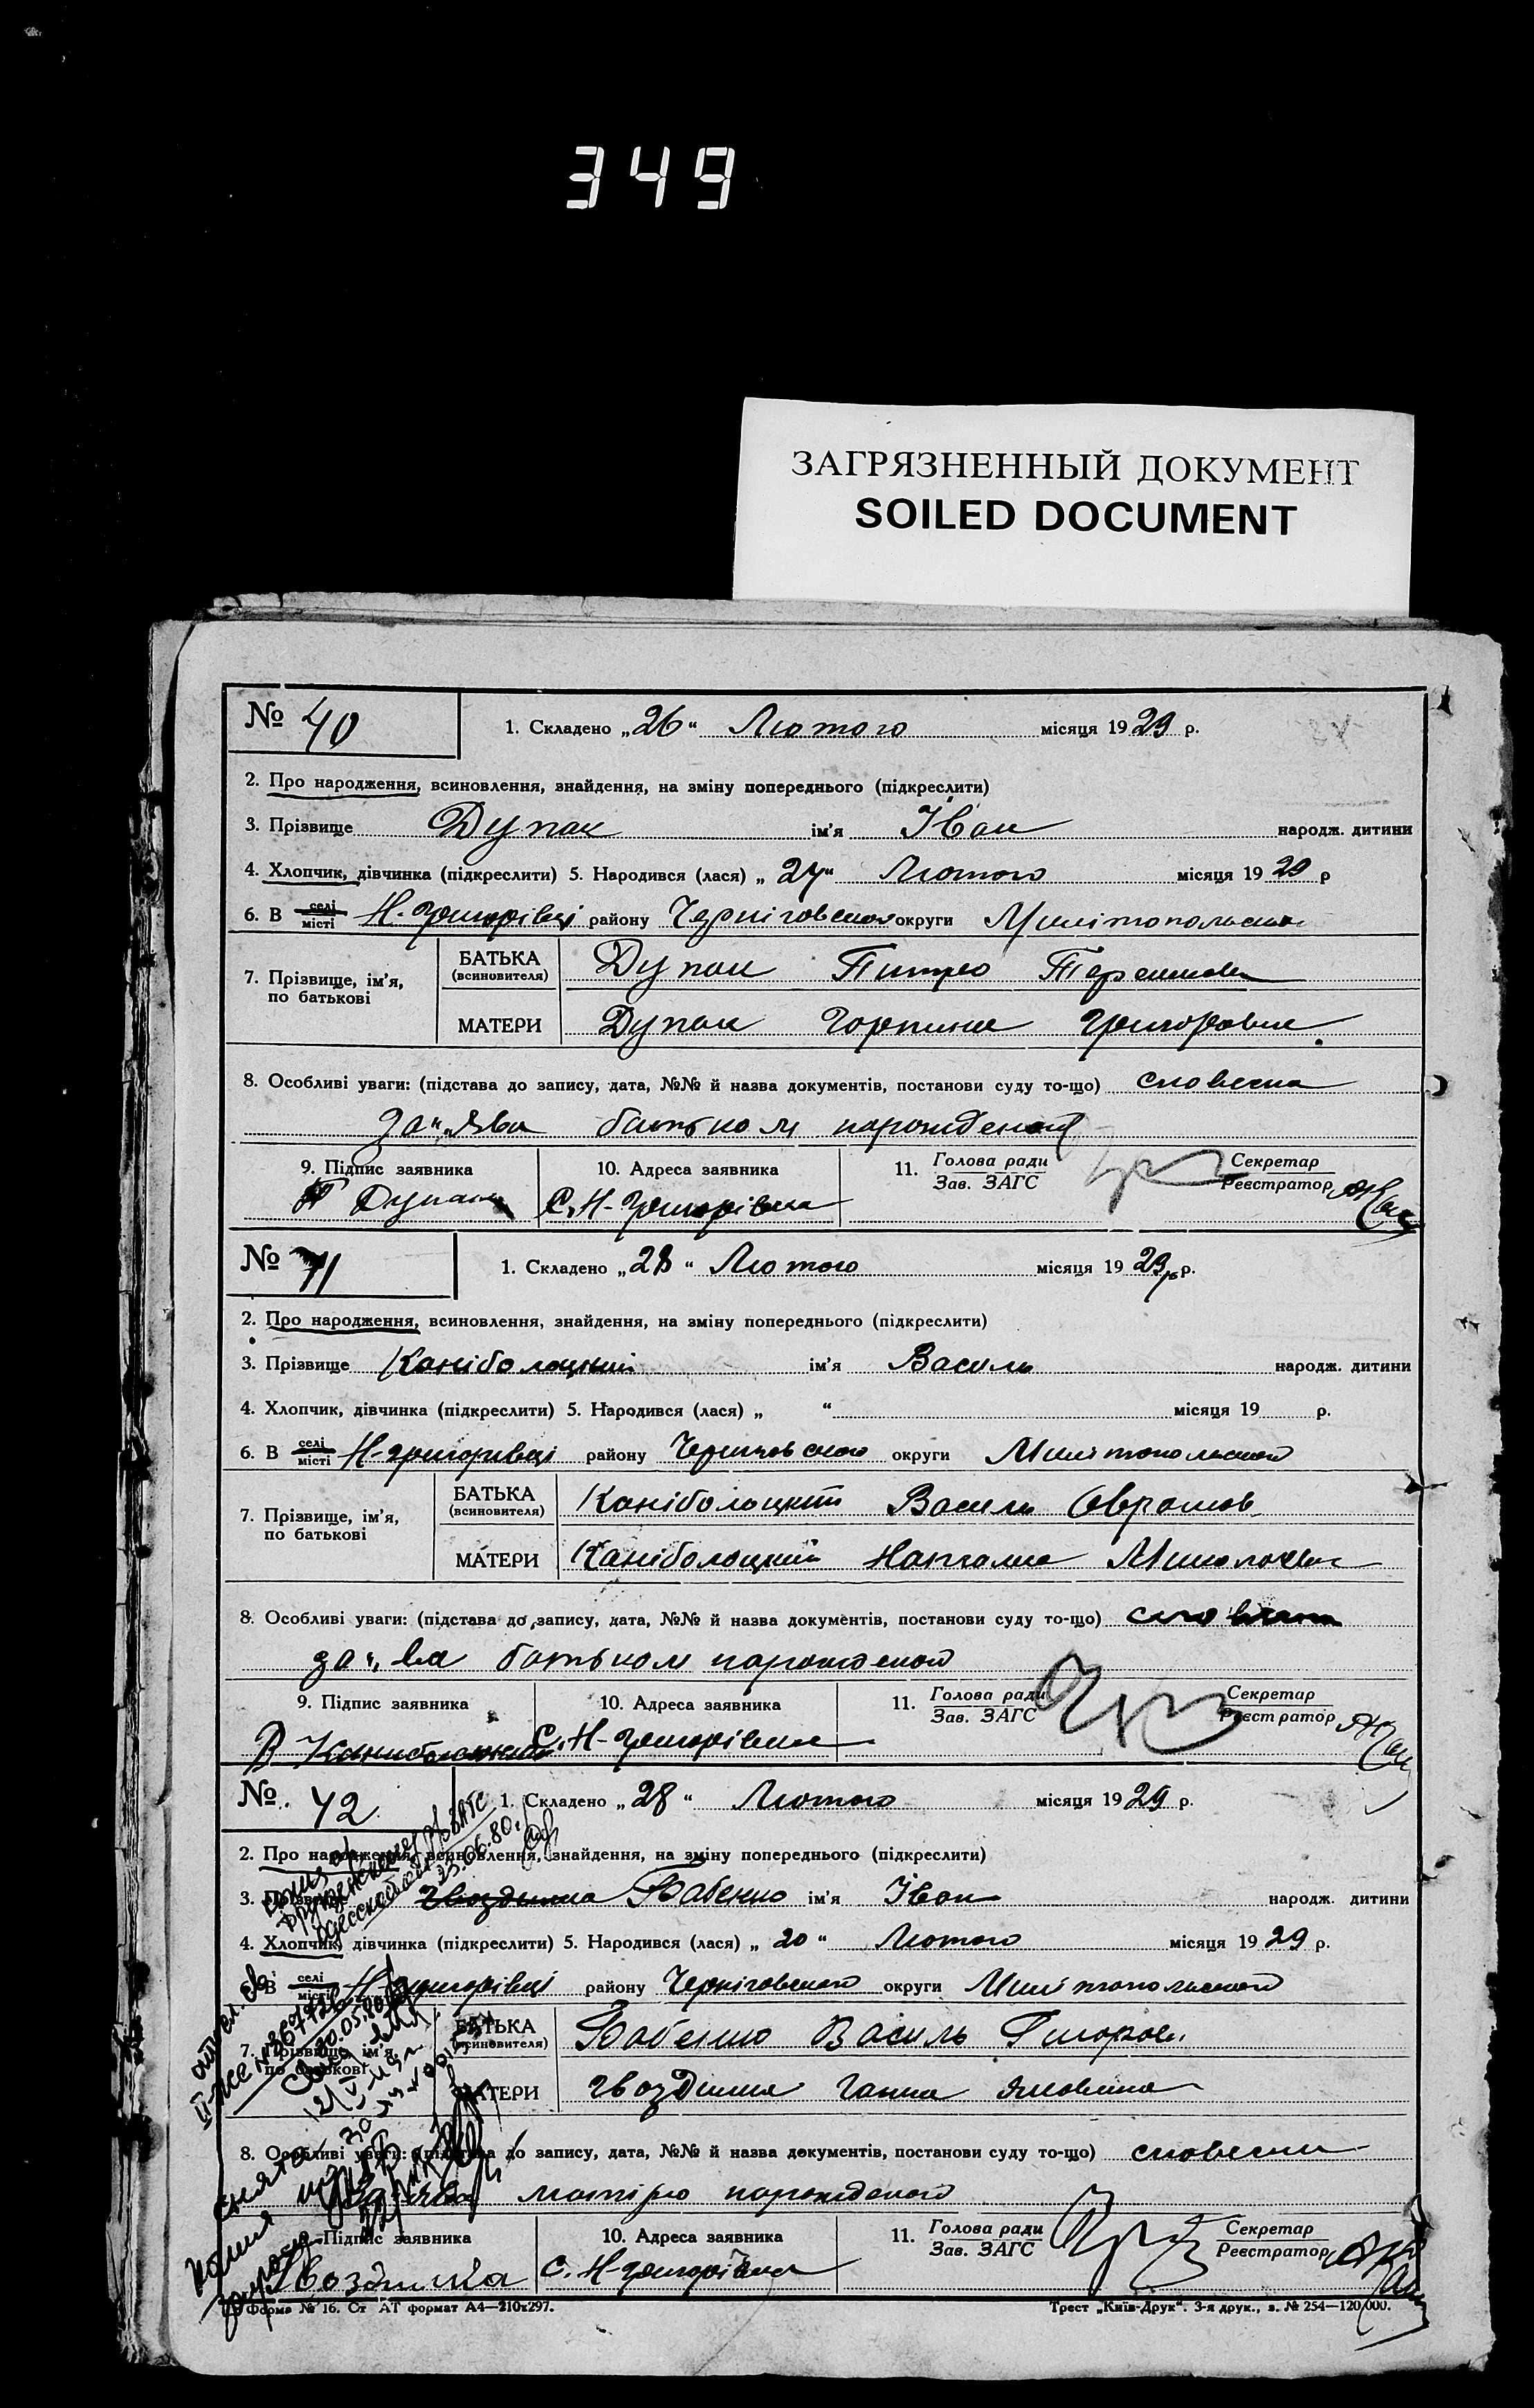 349
ЗАГРЯЗНЕННЫЙ ДОКУМЕНТ
SOILED DOCUMENT
№ 40 1. Складено „26“ Лютого місяця 1929 р.
2. Про народження, всиновлення, знайдення, на зміну попереднього (підкреслити)
3. Прізвище Дупак ім'я Іван народж. дитини
4. Хлопчик, дівчинка (підкреслити) 5. Народився (лася) „24“ Лютого місяця 1929 р
6. В селі місті Н-Григорівці району Черніговського округи Милітопольської
7. Прізвище, ім'я, по батькові
БАТЬКА (всиновителя) Дупак Питро
МАТЕРИ Дупак Горпина Григоровна
8. Особливі уваги: (підстава до запису, дата, №№ й назва документів, постанови суду то-що) словесна
за„ява батьком нарожденого
9. Підпис заявника 10. Адреса заявника 11. Голова ради Зав. ЗАГС Секретар Реєстратор
П Дупак С. Н-Григорівка
№ 41 1. Складено „28“ Лютого місяця 1929 р.
2. Про народження, всиновлення, знайдення, на зміну попереднього (підкреслити)
3. Прізвище Каніболоцький ім'я Василь народж. дитини
4. Хлопчик, дівчинка (підкреслити) 5. Народився (лася) „ “ місяця 19 р.
6. В селі місті Н-Григоривці району Черниговського округи Милітопольської
7. Прізвище, ім'я, по батькові
БАТЬКА (всиновителя) Каніболоцкий Василь Оврамов.
МАТЕРИ Каніболоцкий Наталия
8. Особливі уваги: (підстава до запису, дата, №№ й назва документів, постанови суду то-що) словесна
за„ва батьком нарожденой
9. Підпис заявника 10. Адреса заявника 11. Голова ради Зав. ЗАГС Секретар Реєстратор
В Каниболоцкий С. Н-Григорівка
№ 42 1. Складено „28“ Лютого місяця 1929 р.
2. Про народження, всиновлення, знайдення, на зміну попереднього (підкреслити)
3. Прізвище Гвоздика Бабенко ім'я Іван народж. дитини
4. Хлопчик, дівчинка (підкреслити) 5. Народився (лася) „20“ Лютого місяця 1929 р.
6. В селі місті Н-Григорівці району Черніговської округи Милітопольской
7. Прізвище, ім'я, по батькові
БАТЬКА (всиновителя) Бабенко Василь
МАТЕРИ Гвоздика Ганна Яковлина
8. Особливі уваги: (підстава до запису, дата, №№ й назва документів, постанови суду то-що) словесна
матірю нарожденого
9. Підпис заявника 10. Адреса заявника 11. Голова ради Зав. ЗАГС Секретар Реєстратор
Гвоздика С. Н-Григорівка
Форма № 16. Ст АТ формат А4—210х297. Трест „Київ-Друк“. 3-я друк., з. № 254—120.000.